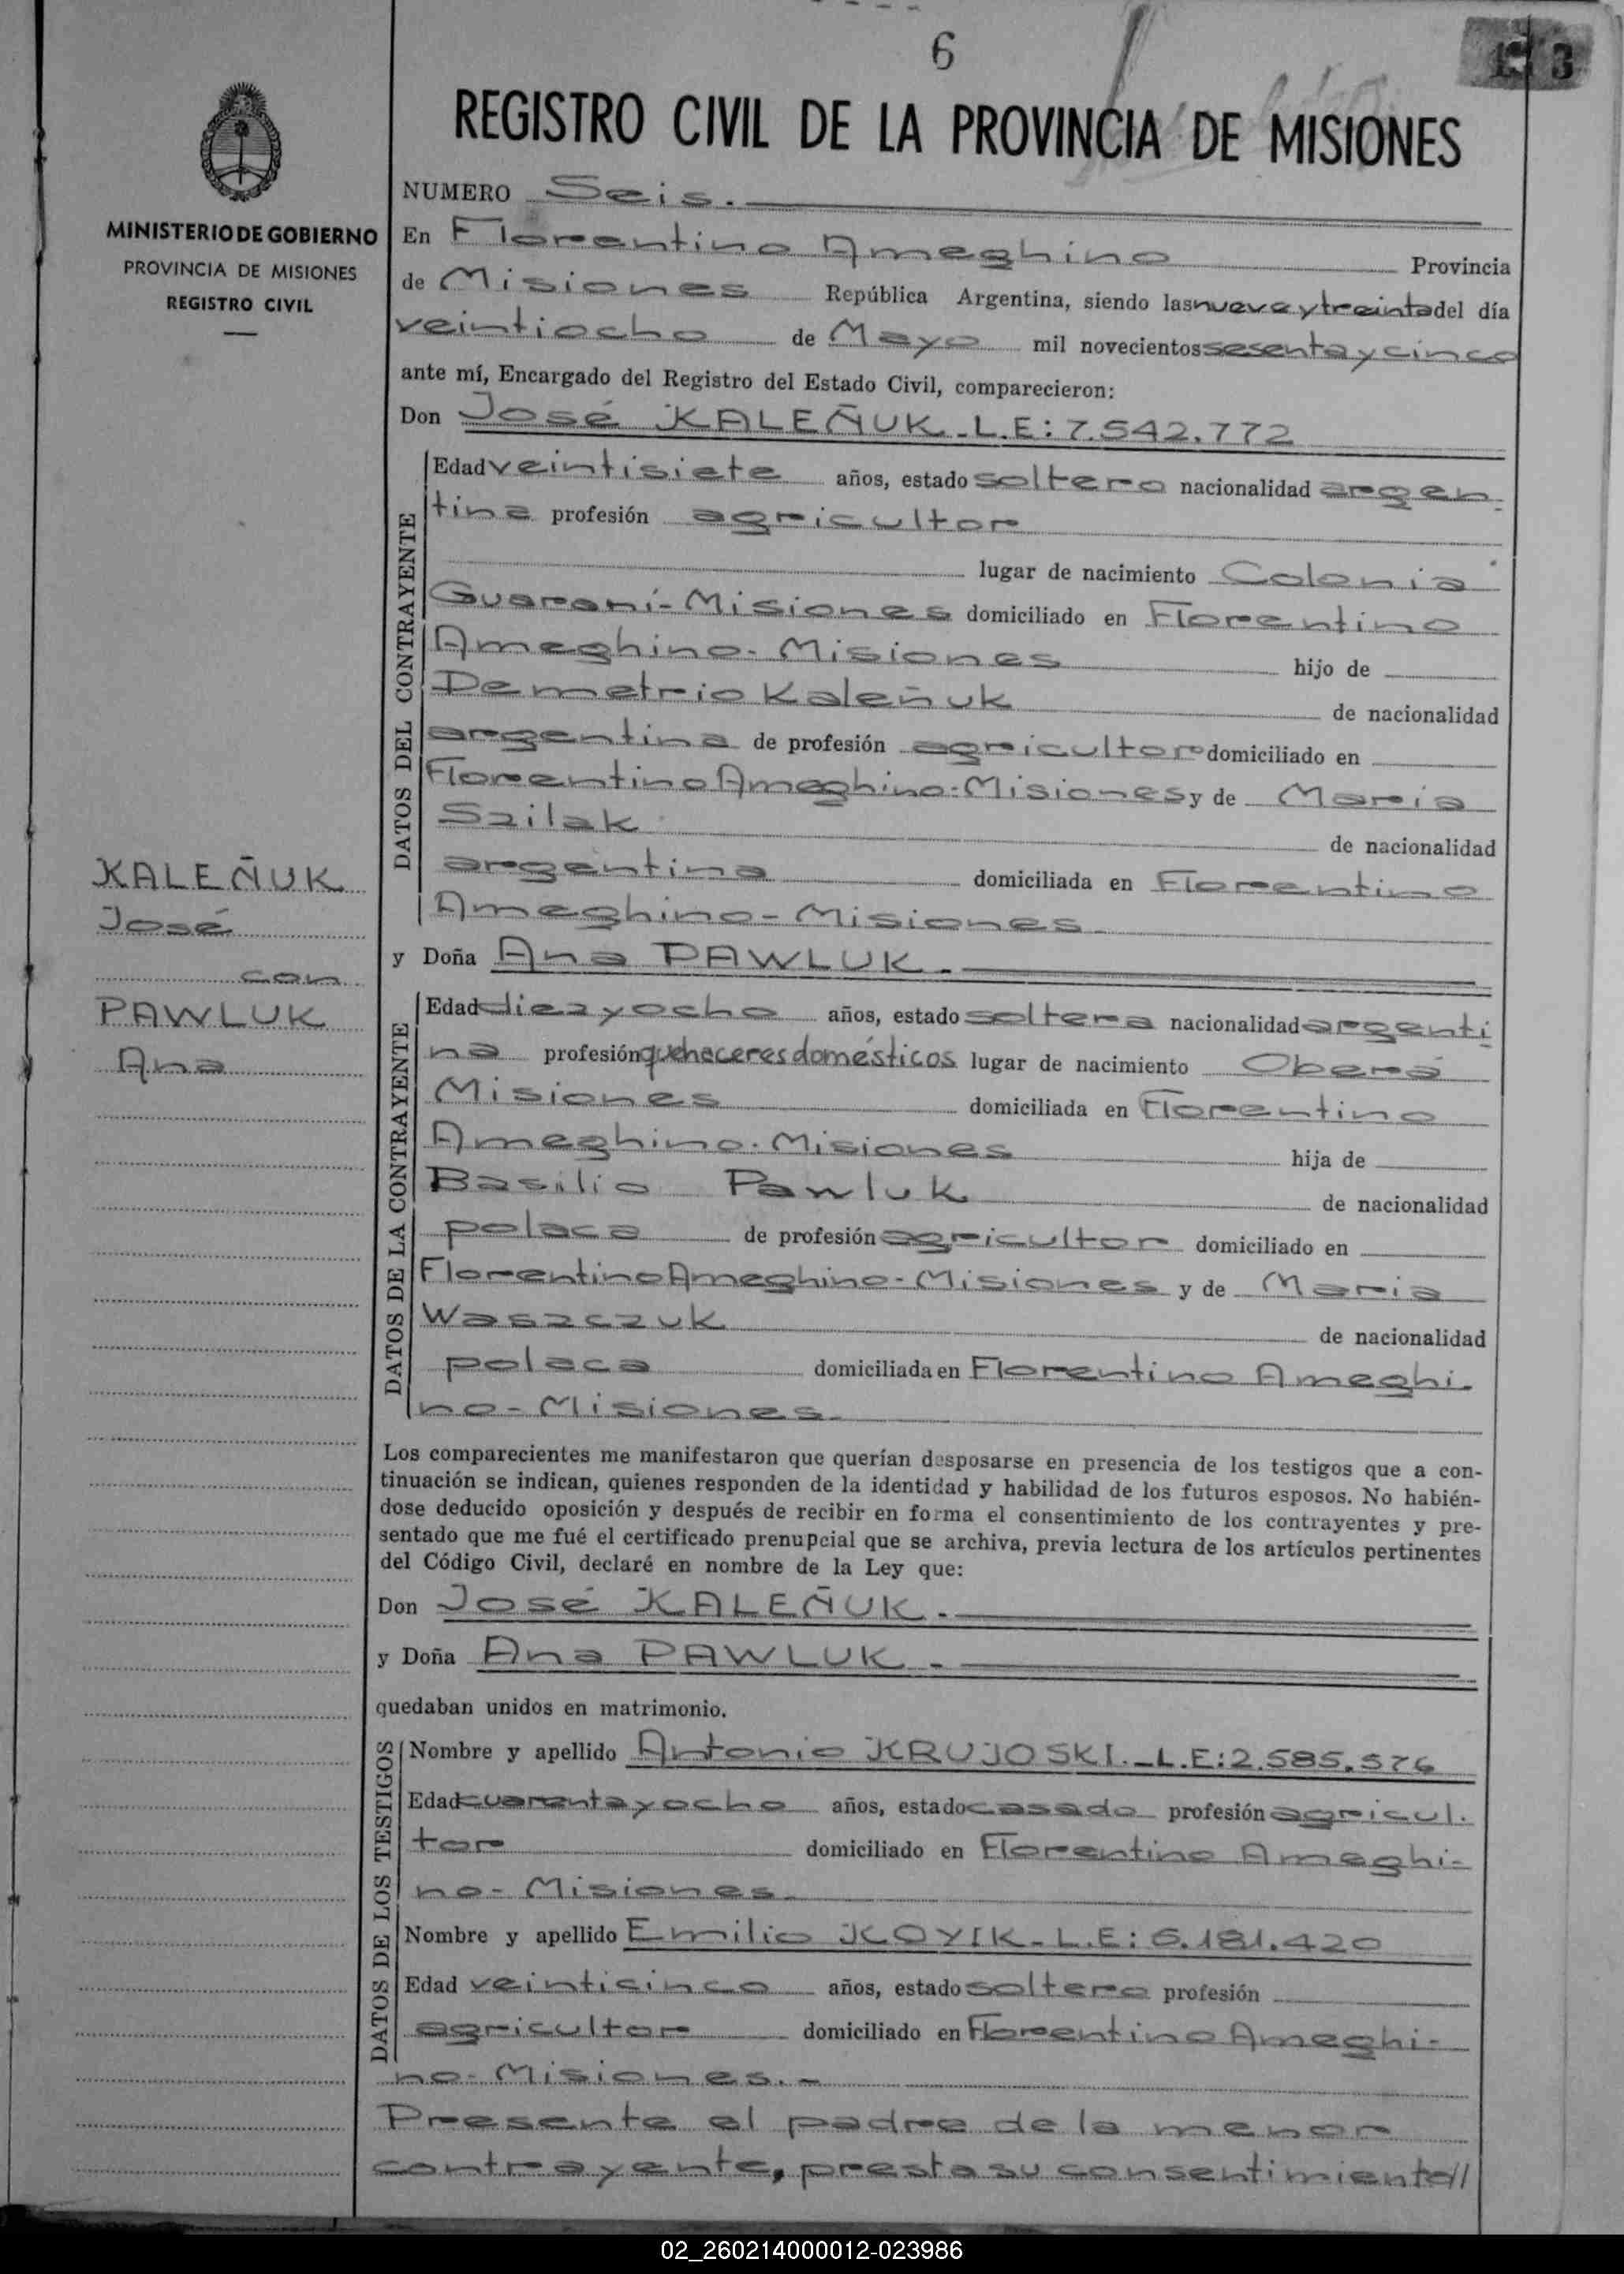 6
3
REGISTRO CIVIL DE LA PROVINCIA DE MISIONES
MINISTERIO DE GOBIERNO
PROVINCIA DE MISIONES
REGISTRO CIVIL
NUMERO Seis.
En Florentino Ameghino Provincia
de Misiones República Argentina, siendo las nueve y treinta del día
veintiocho de Mayo mil novecientos sesenta y cinco
ante mí, Encargado del Registro del Estado Civil, comparecieron:
Don José KALEÑUK. L.E: 7.542.772
DATOS DEL CONTRAYENTE
Edad veintisiete años, estado soltero nacionalidad argen-
tina profesión agricultor
lugar de nacimiento Colonia
Guaraní-Misiones domiciliado en Florentino
Ameghino-Misiones hijo de
Demetrio Kaleñuk de nacionalidad
argentina de profesión agricultor domiciliado en
Florentino Ameghino-Misiones y de María
Szilak de nacionalidad
argentina domiciliada en Florentino
Ameghino-Misiones
KALEÑUK
José
con
PAWLUK
Ana
y Doña Ana PAWLUK.
DATOS DE LA CONTRAYENTE
Edad diez y ocho años, estado soltera nacionalidad argenti
na profesión quehaceres domésticos lugar de nacimiento Oberá
Misiones domiciliada en Florentino
Ameghino-Misiones hija de
Basilio Pawluk de nacionalidad
polaca de profesión agricultor domiciliado en
Florentino Ameghino-Misiones y de Maria
Waszczuk de nacionalidad
polaca domiciliada en Florentino Ameghi-
no-Misiones.
Los comparecientes me manifestaron que querían desposarse en presencia de los testigos que a con-
tinuación se indican, quienes responden de la identidad y habilidad de los futuros esposos. No habién-
dose deducido oposición y después de recibir en forma el consentimiento de los contrayentes y pre-
sentado que me fué el certificado prenupcial que se archiva, previa lectura de los artículos pertinentes
del Código Civil, declaré en nombre de la Ley que:
Don José KALEÑUK.
y Doña Ana PAWLUK.
quedaban unidos en matrimonio.
DATOS DE LOS TESTIGOS
Nombre y apellido Antonio KRUJOSKI._L.E: 2.585.576
Edad cuarenta y ocho años, estado casado profesión agricul.
tor domiciliado en Florentino Ameghi-
no-Misiones.
Nombre y apellido Emilio KOYIK-L.E: 6.181.420
Edad veinticinco años, estado soltero profesión
agricultor domiciliado en Florentino Ameghi-
no-Misiones.-
Presente el padre de la menor
contrayente, presta su consentimiento//
02_260214000012-023986